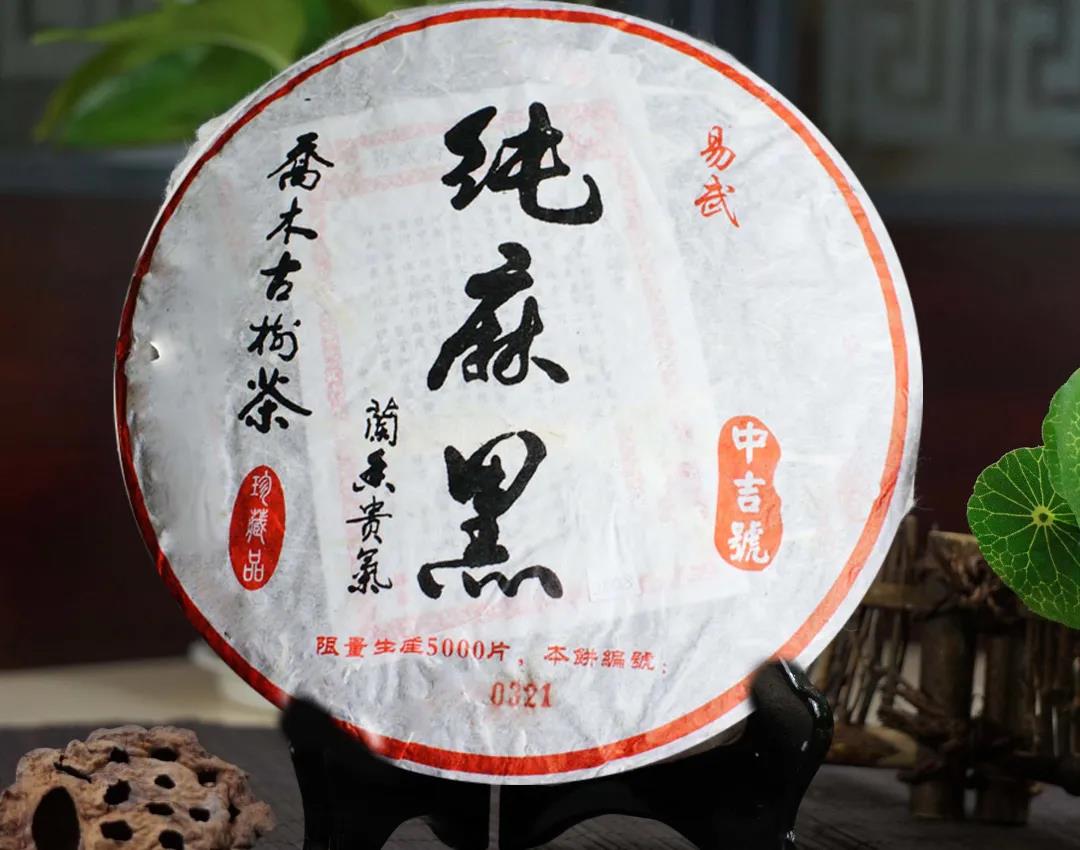 易武
中吉號
純麻黑
蘭香貴氣
喬木古樹茶
珍藏品
限量生産5000片，本餅編號：
0321